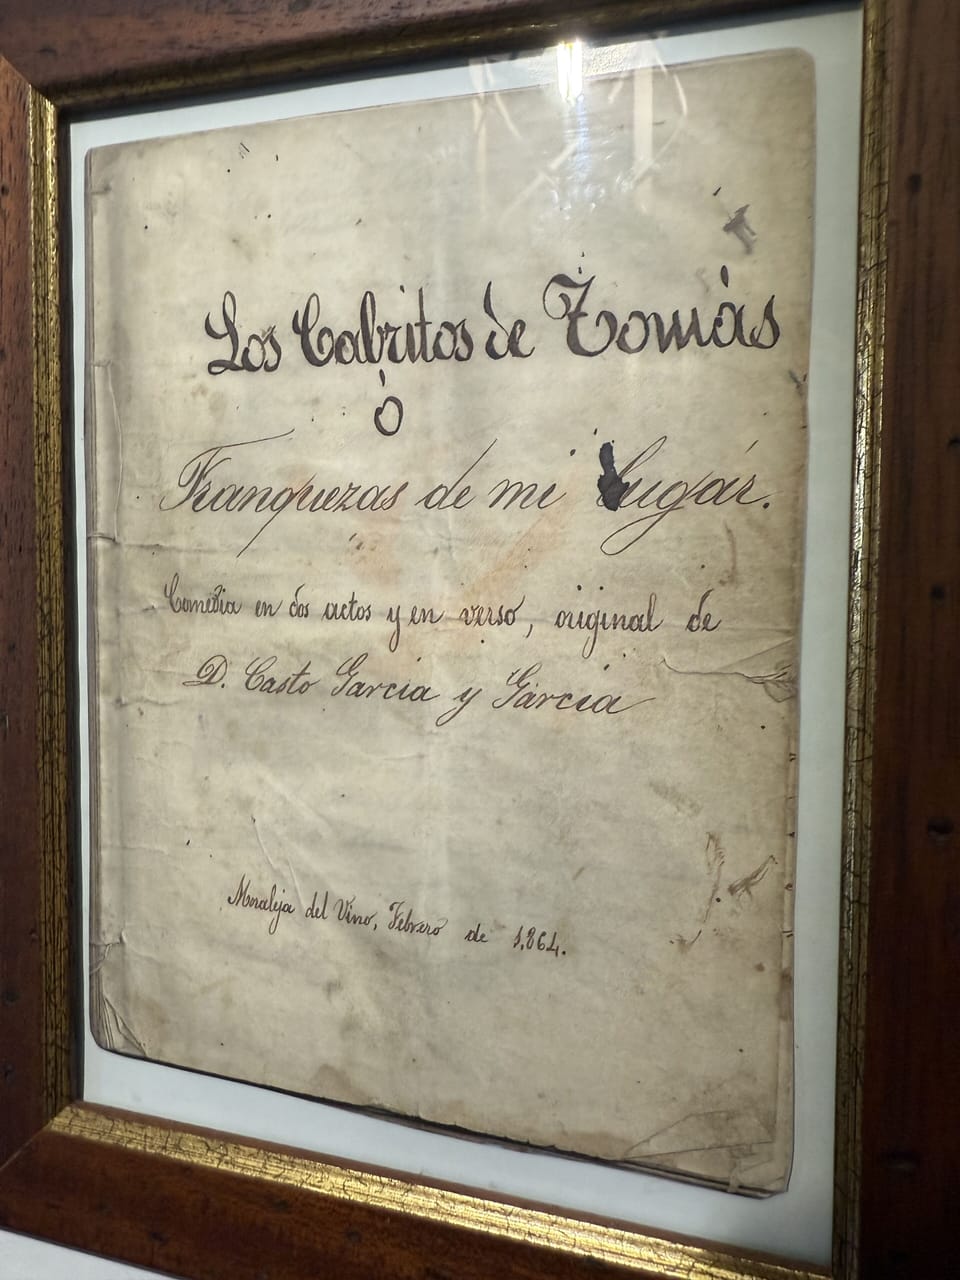 Los Cabritos de Tomás
ó
Franquezas de mi lugár.
Comedia en dos actos y en verso, original de
D. Casto Garcia y Garcia
Moraleja del Vino, Febrero de 1,864.